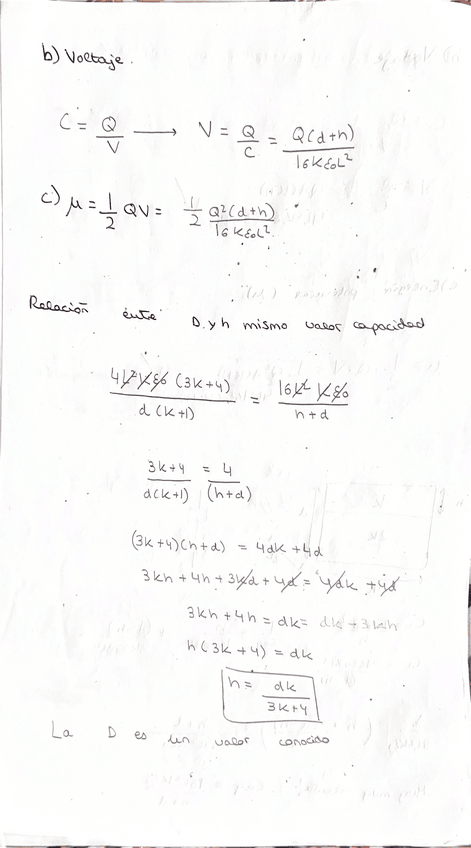 b) Voltaje.
C = Q/V ⟶ V = Q/C = Q(d+h)/16Kε₀L²
c) μ = 1/2 QV = 1/2 Q²(d+h)/16Kε₀L²
Relación entre D y h mismo valor capacidad
4L²Kε₀(3K+4)/d(K+1) = 16L²Kε₀/h+d
3K+4/d(K+1) = 4/(h+d)
(3K+4)(h+d) = 4dK+4d
3Kh + 4h + 3Kd + 4d = 4dK + 4d
3Kh + 4h = dK =
h(3K+4) = dK
h = dK/3K+4
La D es un valor conocido